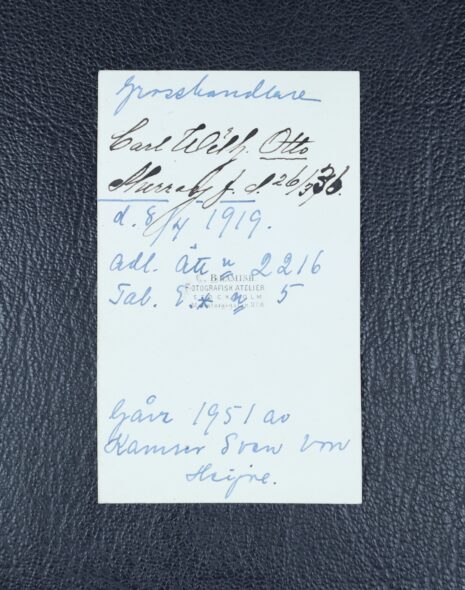 Grosshandlare
Carl Wilh. Otto
Murray f. d. 26/3 36.
d. 8/4 1919.
adl. ätt n 2216
Tab. n 5
FOTOGRAFISK ATELIER
STOCKHOLM
Gåva 1951 av
Kamrer Sven von
Heijne.